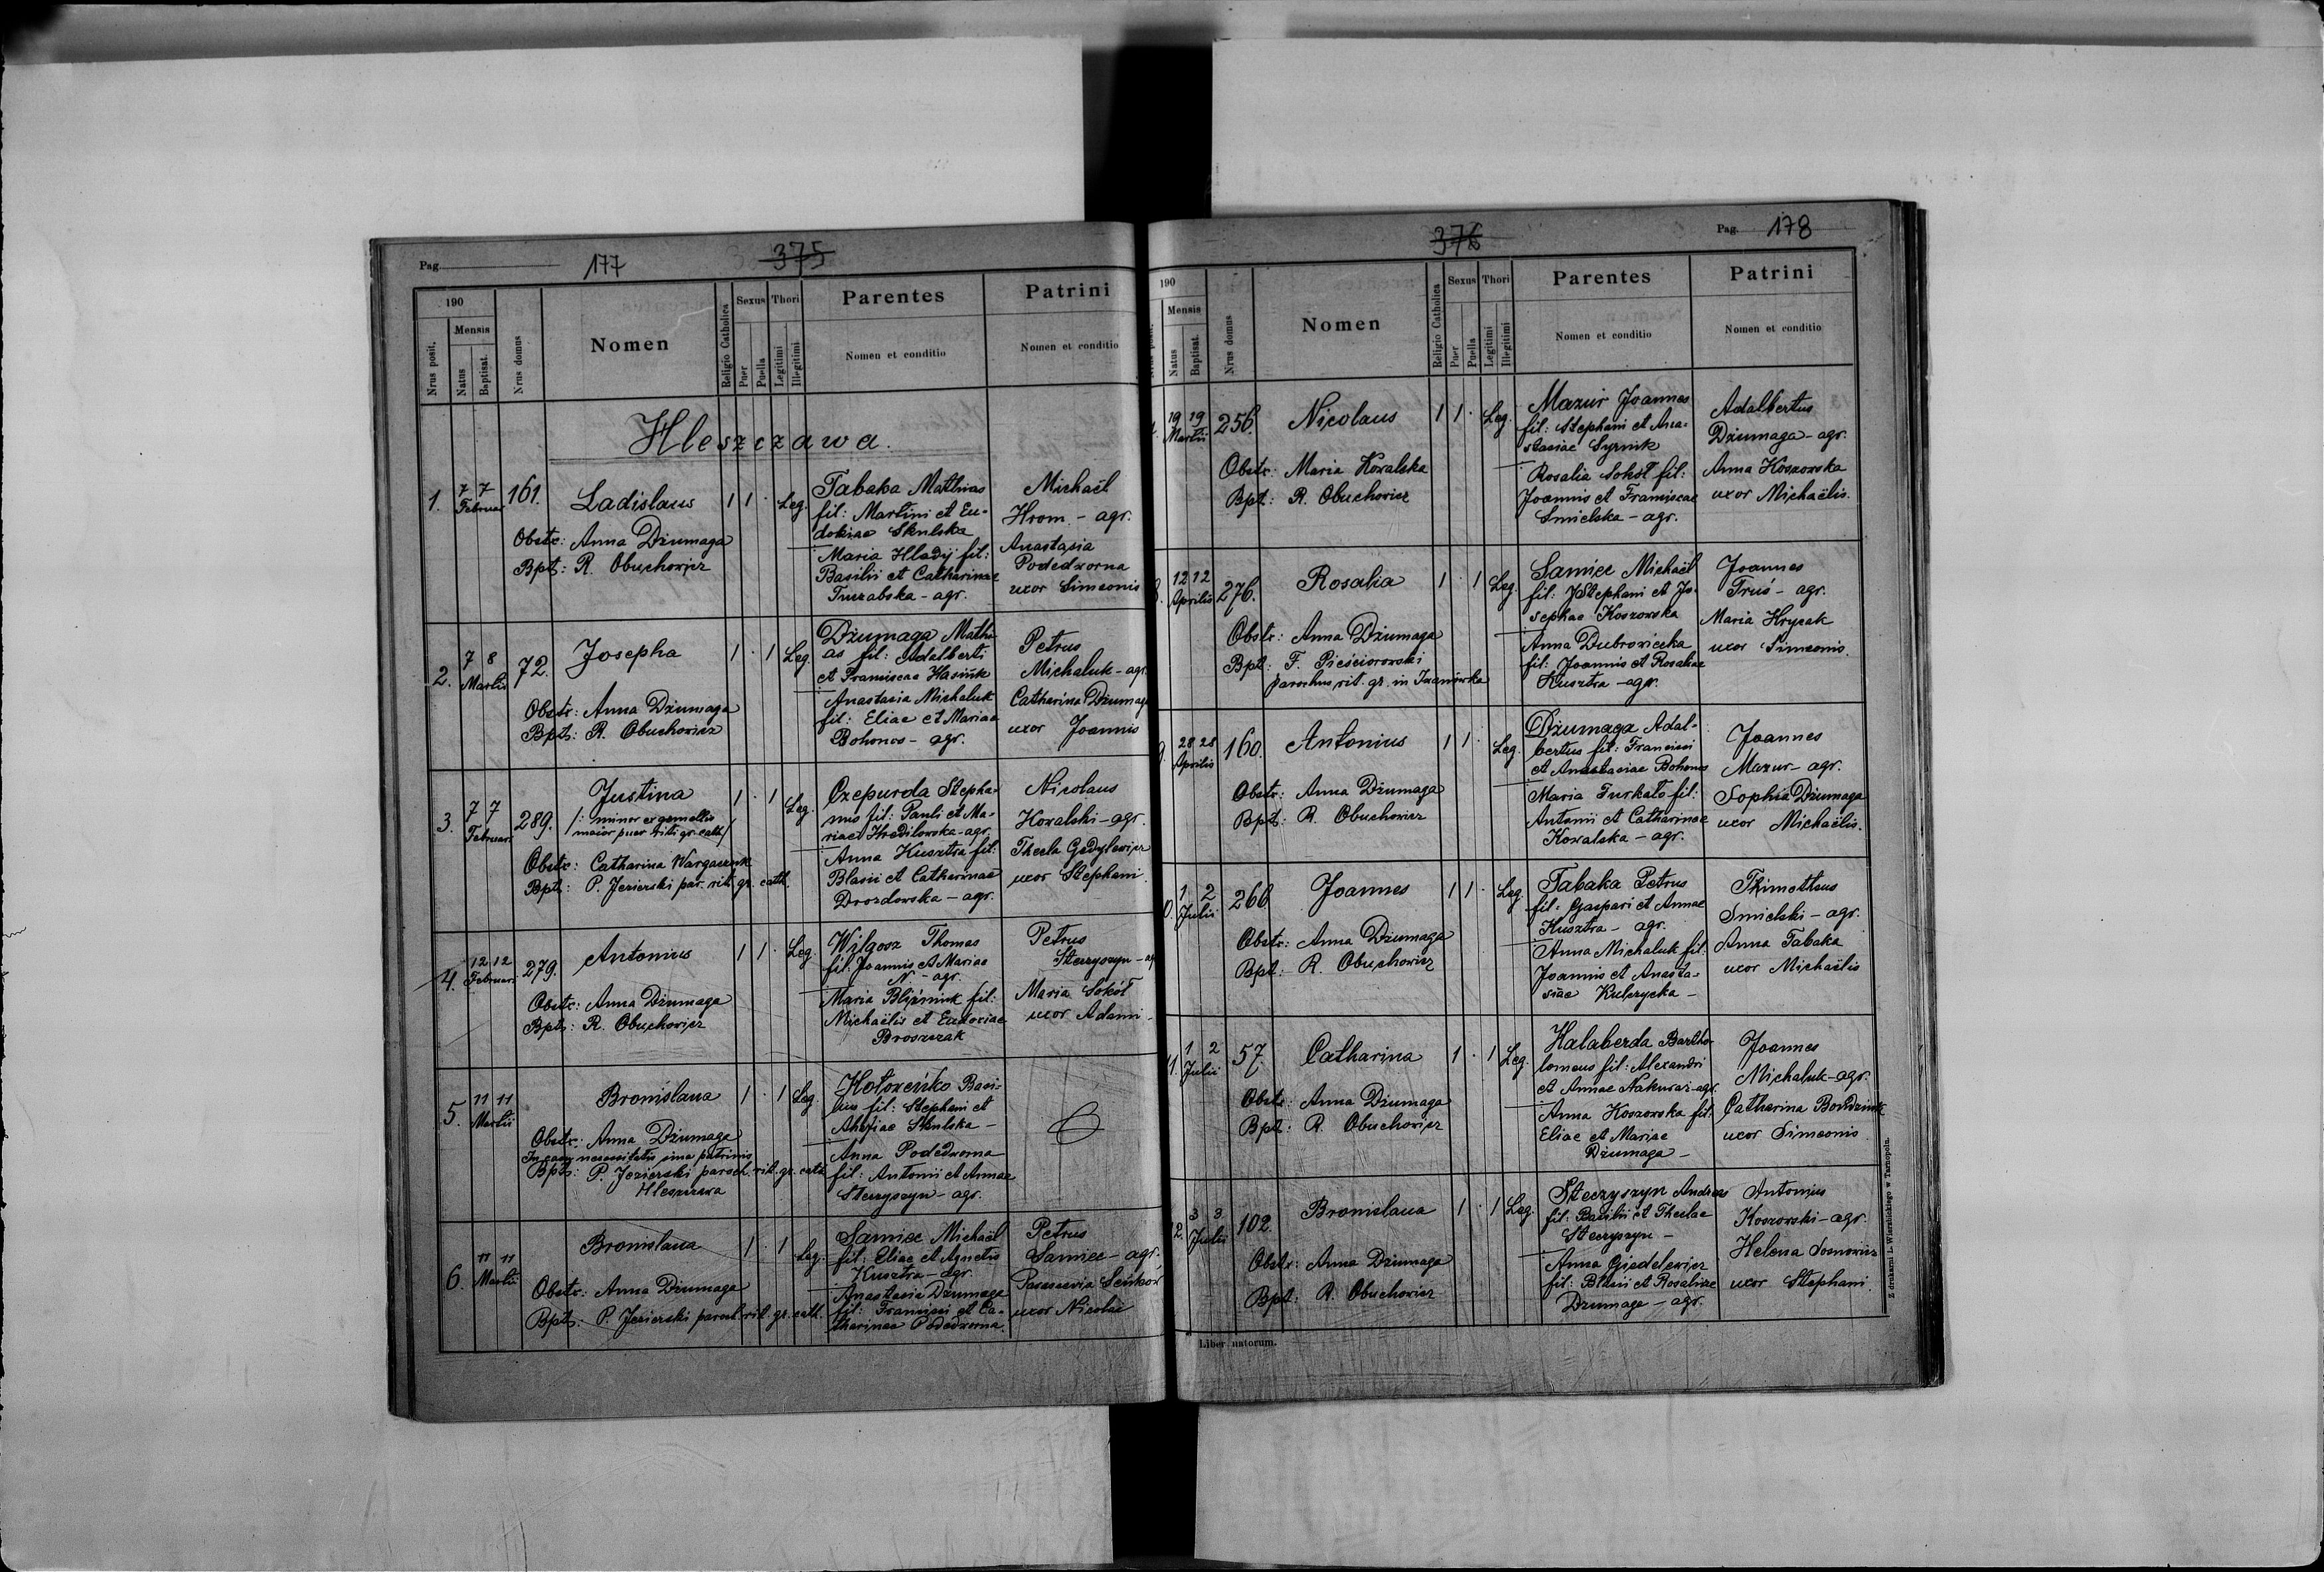 Pag. 177 375
190
Nrus posit.
Mensis
Natus
Baptisat.
Nrus domus
Nomen
Religio Catholica
Sexus
Puer
Puella
Thori
Legitimi
Illegitimi
Parentes
Nomen et conditio
Patrini
Nomen et conditio
Hleszczawa.
1. 7 7 Februar 161. Ladislaus 1 1 · Leg.
Obstr: Anna Dżumaga
Bpt: R. Obuchowicz
Tabaka Matthias
fil: Martini et Eu-
dokiae Skulska
Maria Hladij fil:
Basilii et Catharinae
Turzabska - agr.
Michaël
Hrom - agr.
Anastasia
Podedworna
uxor Simeonis
2. 7 8 Martii 72. Josepha 1 · 1 Leg.
Obstr: Anna Dżumaga
Bpt: R. Obuchowicz
Dżumaga Mathi
as fil: Adalberti
et Franciscae Hasiuk
Anastasia Michaluk
fil: Eliae et Mariae
Bohonos - agr.
Petrus
Michaluk - agr.
Catharina Dżumaga
uxor Joannis
3. 7 7 Februar. 289. Justina 1 · 1 Leg.
/: minor ex gemellis
maior puer riti gr. cath/
Obstr: Catharina Wargaczuk
Bpt: P. Jezierski par. rit. gr. cath.
Czepurda Stepha-
nus fil: Pauli et Ma-
riae Hredilowska - agr.
Anna Kusztra fil:
Blasii et Catharinae
Drozdowska - agr.
Nicolaus
Kowalski - agr.
Thecla Gedylewicz
uxor Stephani.
4. 12 12 Februar. 279. Antonius 1 1 · Leg.
Obstr: Anna Dżumaga
Bpt: R. Obuchowicz
Wilgosz Thomas
fil. Joannis et Mariae
N - agr.
Maria Bliźniuk fil:
Michaëlis et Eudoxiae
Broszczak
Petrus
Steczyszyn - ag
Maria Sokół
uxor Adami -
5. 11 11 Martii Bronislaua 1 · 1 Leg.
Obstr: Anna Dżumaga
In casu necessitatis sine patrinis
Bpt: P. Jezierski paroch. rit. gr. cath.
Hleszczawa
Hołozeńko Basi-
lius fil: Stephani et
Skulska -
Anna Podedworna
fil: Antonii et Annae
Steczyszyn - agr.
6. 11 11 Martii Bronislaua 1 · 1 Leg.
Obstr: Anna Dżumaga
Bpt: P. Jezierski paroch. rit. gr. cath.
Samiec Michaël
fil: Eliae et Agnetis
Kusztra - agr.
Anastasia Dżumaga
fil: Francisci et Ca-
tharinae Podedworna.
Petrus
Samiec - agr.
Parascevia Seńków
uxor Nicolai
376 Pag. 178
190
Mensis
Natus
Baptisat.
Nrus domus
Nomen
Religio Catholica
Sexus
Puer
Puella
Thori
Legitimi
Illegitimi
Parentes
Nomen et conditio
Patrini
Nomen et conditio
19 19 Martii 256. Nicolaus 1 1 · Leg.
Obstr: Maria Kowalska
Bpt: R. Obuchowicz
Mazur Joannes
fil: Stephani et Ana-
stasiae Syrnik
Rosalia Sokół fil:
Joannis et Franciscae
Smielska - agr.
Adalbertus
Dżumaga - agr.
Anna Koszowska
uxor Michaëlis.
12 12 Aprilis 276. Rosalia 1 · 1 Leg.
Obstr: Anna Dżumaga
Bpt: F. Pieściorowski
parochus rit. gr. in Iwanówka
Samiec Michaël
fil: Stephani et Jo-
sephae Koszowska
Anna Dubrowiecka
fil: Joannis et Rosaliae
Kusztra - agr.
Joannes
Truś - agr.
Maria Hrycak
uxor Simeonis.
9. 28 28 Aprilis 160. Antonius 1 1 · Leg.
Obstr: Anna Dżumaga
Bpt: R. Obuchowicz
Dżumaga Adal-
bertus fil: Francisci
et Anastasiae Bohonos
Maria Turkało fil:
Antonii et Catharinae
Kowalska - agr.
Joannes
Mazur - agr.
Sophia Dżumaga
uxor Michaëlis.
0. 1 2 Julii 266 Joannes 1 1 · Leg
Obstr: Anna Dżumaga
Bpt: R. Obuchowicz
Tabaka Petrus
fil: Gaspari et Annae
Kusztra - agr.
Anna Michaluk fil:
Joannis et Anasta-
siae Kulczycka -
Thimotheus
Smielski - agr.
Anna Tabaka
uxor Michaëlis
1. 1 2 Julii 57. Catharina 1 · 1 Leg.
Obstr: Anna Dżumaga
Bpt: R. Obuchowicz
Halaberda Bartho-
lomeus fil: Alexandri
et Annae Nakwas - agr.
Anna Koszowska fil:
Eliae et Mariae
Dżumaga -
Joannes
Michaluk - agr.
Catharina Bordziuk
uxor Simeonis.
2. 3 3 Julii 102. Bronislaua 1 · 1 Leg.
Obstr: Anna Dżumaga
Bpt: R. Obuchowicz
Steczyszyn Andreas
fil: Basilii et Theclae
Steczyszyn -
Anna Giedelewicz
fil: Blasii et Rosaliae
Dżumaga - agr.
Antonius
Koszowski - agr.
Helena
uxor Stephani.
Liber natorum.
Z drukarni L. Wierzbickiego w Tarnopolu.